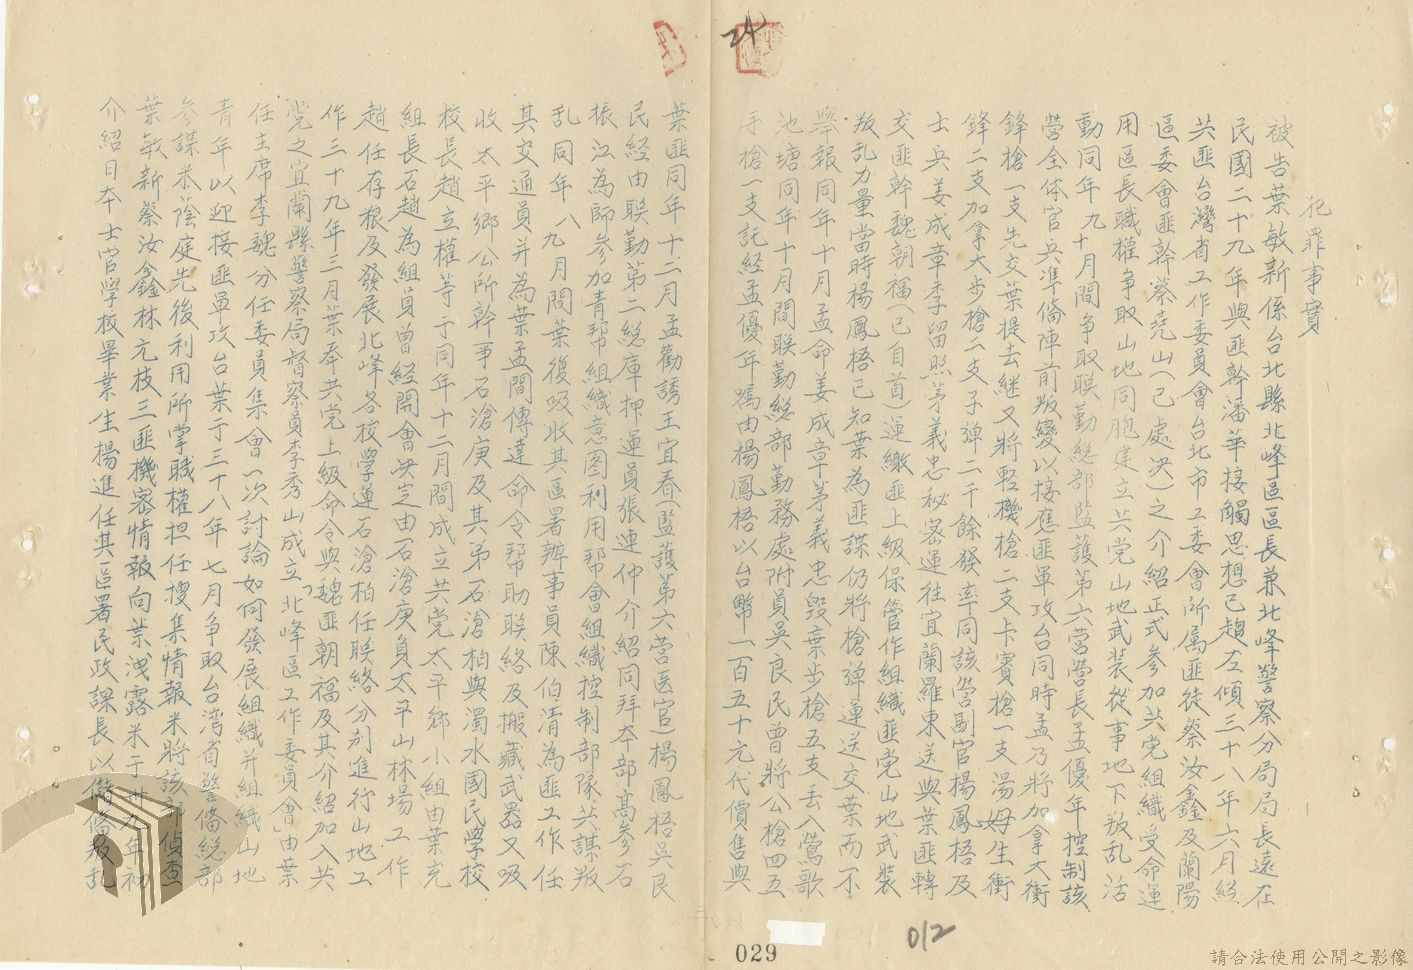 犯罪事實
被告葉敏新係台北縣北峰區區長兼北峰警察分局局長遠在
民國二十九年與匪幹潘華接觸思想已趨左傾三十八年六月經
共匪台灣省工作委員會台北市工委會所屬匪徒蔡汝鑫及蘭陽
區委會匪幹蔡堯山(已處决)之介紹正式參加共党組織受命運
用區長職權争取山地同胞建立共党山地武装從事地下叛乱活
動同年九十月間争取联勤總部監護第六营营長孟優年控制該
营全体官兵準備陣前叛變以接應匪軍攻台同時孟乃將加拿大衝
鋒槍一支先交葉提去継又將輕機槍二支卡賓槍一支湯姆生衝
鋒二支加拿大步槍二支子彈二千餘發率同該营副官楊鳳梧及
士兵姜成章季留照茅義忠秘密運往宜蘭羅東送與葉匪轉
交匪幹魏朝福(已自首)運繳匪上級保管作組織匪党山地武装
叛乱力量當時楊鳳梧已知葉為匪諜仍將槍彈運送交葉而不
舉報同年十月孟命姜成章茅義忠毀棄步槍五支丢入鶯歌
池塘同年十月間联勤總部勤務處附員吳良民曾將公槍四五
手槍一支託經孟優年嘱由楊鳳梧以台幣一百五十元代價售與
葉匪同年十二月孟勸誘王宜春(監護第六营医官)楊鳳梧吳良
民経由联勤第二總庫押運員張連仲介紹同拜本部高參石
振江為師參加青帮組織意图利用帮會組織控制部隊共謀叛
乱同年八九月間葉復吸收其區署辦事員陳伯清為匪工作任
其交通員并為葉孟間傳達命令帮助联絡及搬藏武器又吸
收太平鄉公所幹事石滄庚及其弟石滄柏與濁水國民學校
校長趙立權等于同年十二月間成立共党太平鄉小組由葉充
組長石趙為組員曾経開會决定由石滄庚負太平山林場工作
趙任存根及發展北峰各校學運石滄柏任联絡分别進行山地工
作三十九年三月葉奉共党上級命令與魏匪朝福及其介紹加入共
党之宜蘭縣警察局督察員李秀山成立「北峰區工作委員會」由葉
任主席李魏分任委員集會一次討論如何發展組織并組織山地
青年以迎接匪軍攻台葉于三十八年七月争取台湾省警備總部
參謀米蔭庭先後利用所掌職權担任搜集情報米將該部偵查
葉敏新蔡汝鑫林元枝三匪機密情報向葉洩露米于卅九年初
介紹日本士官學校畢業生楊進任其區署民政課長以儲備叛乱
24
029
012
請合法使用公開之影像